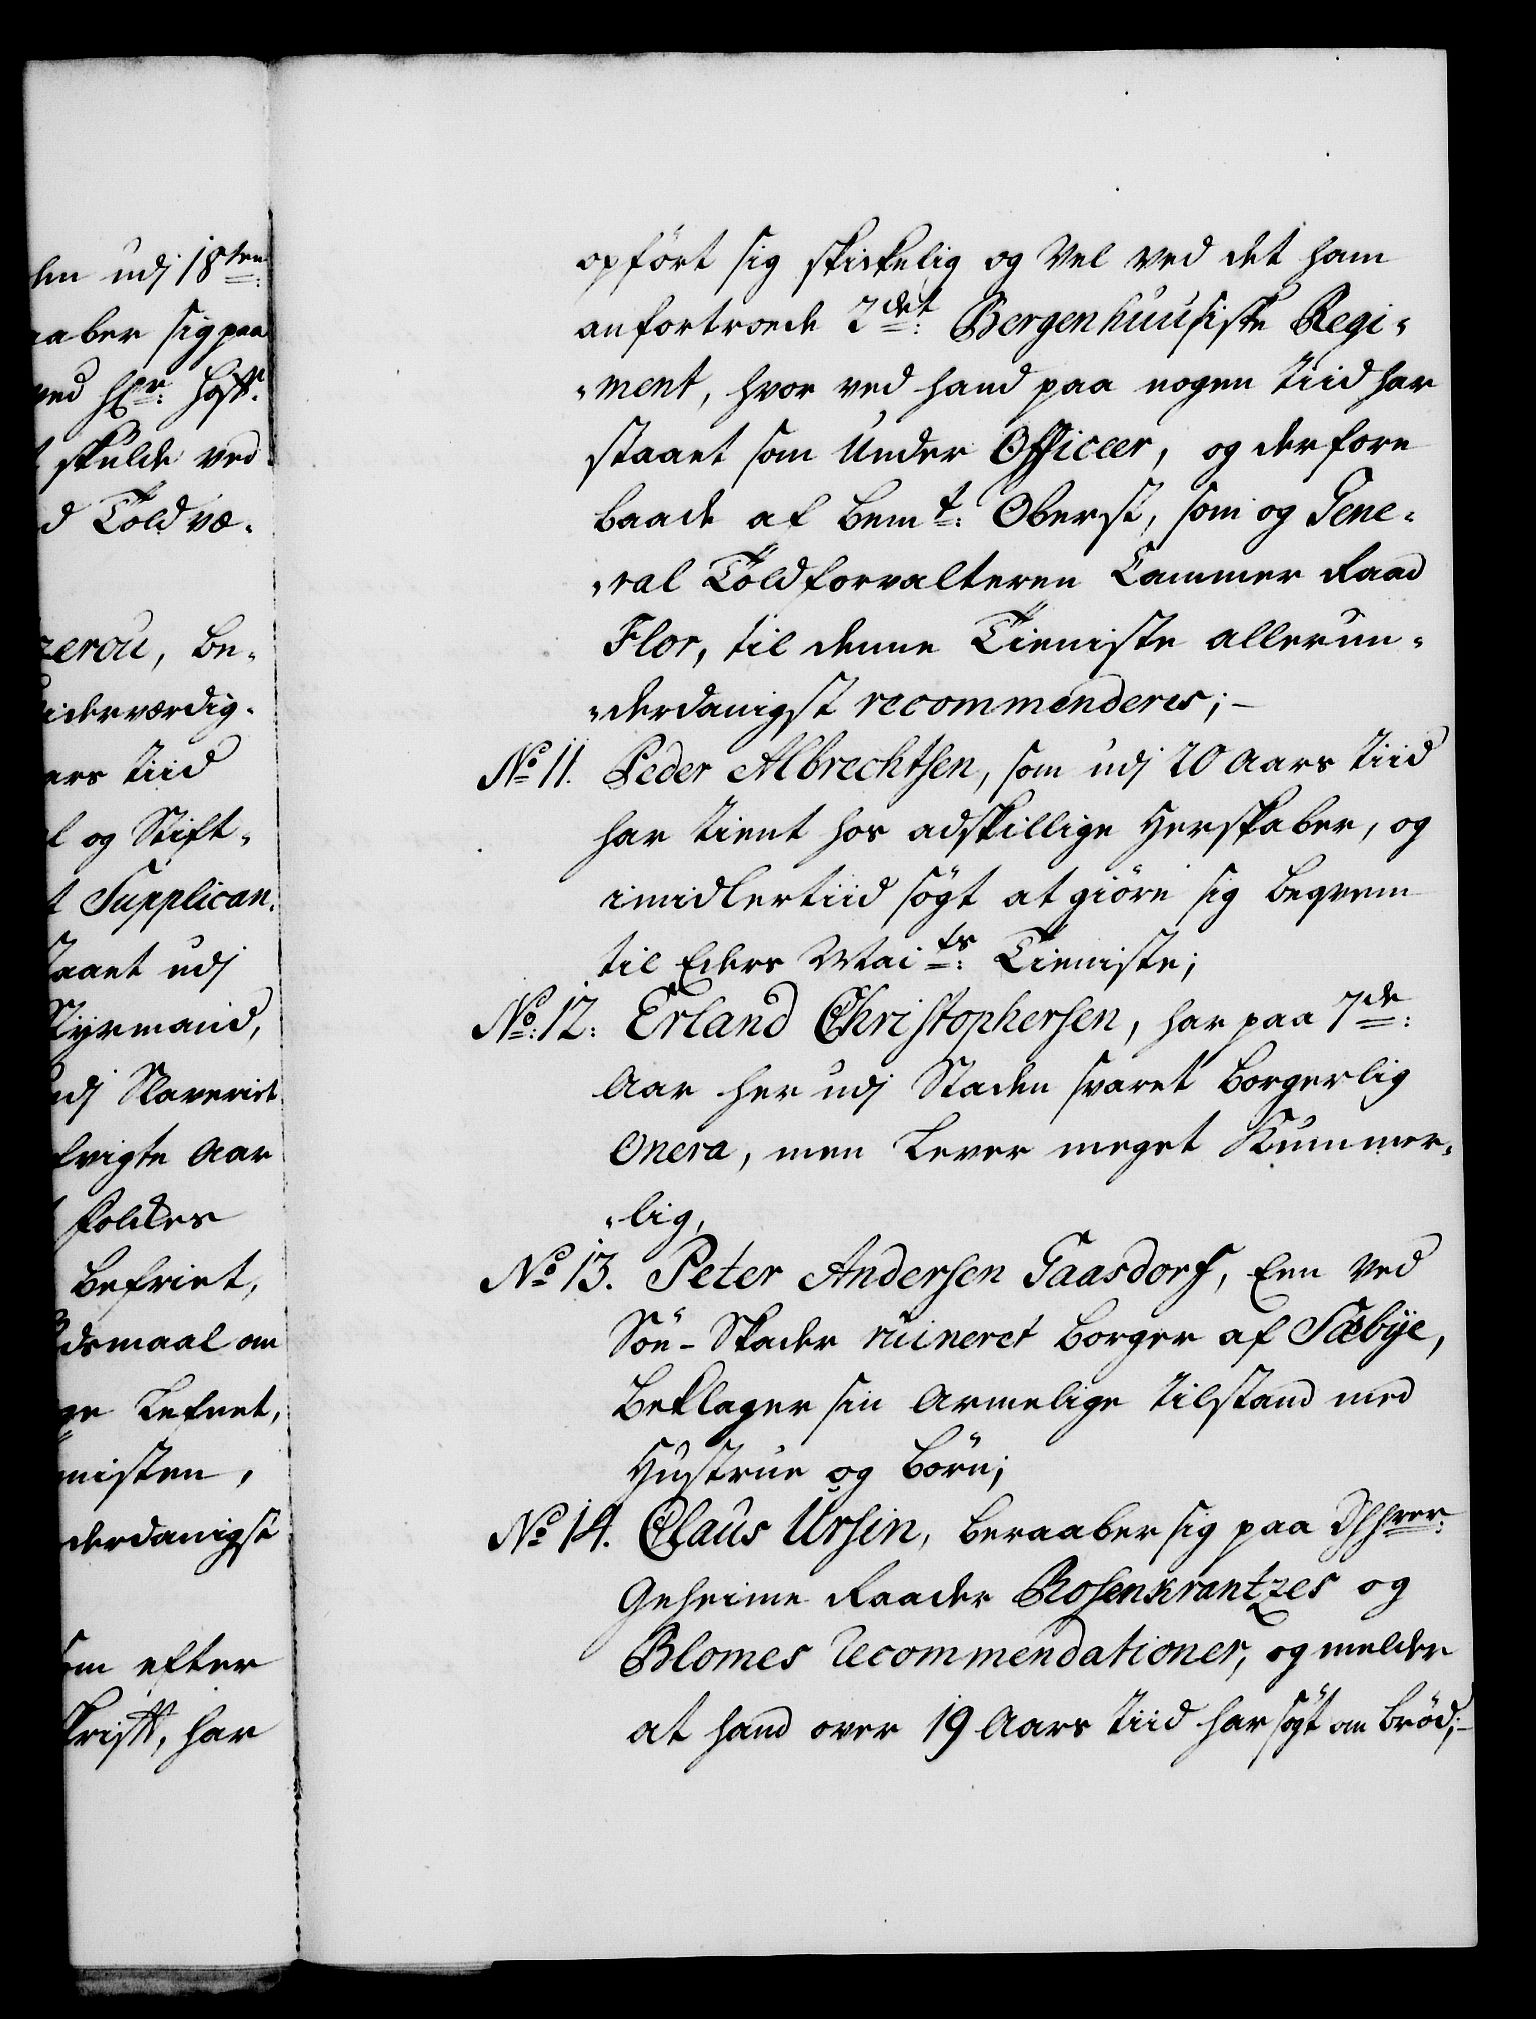 len udj 18ten
aaber sig paa
ved Hr:
skulde ved
d Told væ-
zerou, be-
iderværdig-
ars tiid
l og Stift-
t Supplican-
taaet udj
Styrmand,
udj Slaveriet
Aar
befriet,
dsmaal om
ge
nisten,
derdanigst
om efter
har
opført sig skickelig og vel ved det ham
anfortroede 2det: Bergenhuusiske Regi-
-ment, hvor ved hand paa nogen tiid har
staaet som Under Officeer, og derfore
baade af bemt: Oberst, som og Gene-
-ral Toldforvalteren Cammer Raad
Flor, til denne Tieniste allerun-
-derdanigst recommenderes;-
No 11. Peder Albrechtsen, som udj 20 Aars tiid
har tient hos adskillige Herskaber, og
imidlertiid søgt at giøre sig beqvem
til Eders Maits: Tieniste;
No: 12: Erland Christophersen, har paa 7de:
Aar her udj Staden svaret borgerlig
Onera, men Lever meget Kummer-
-lig,
No 13. Peter Andersen Gaasdorf, Een ved
Søe-Skade ruineret borger af Sæbye,
beklager sin Armelige tilstand med
Hustrue og børn;
No 14. Claus Ursin, beraaber sig paa Dhhrer:
Geheime Raader Rosenkrantzes og
Blomes recommendationer, og melder
at hand over 19 Aars tiid har søgt om brød;-